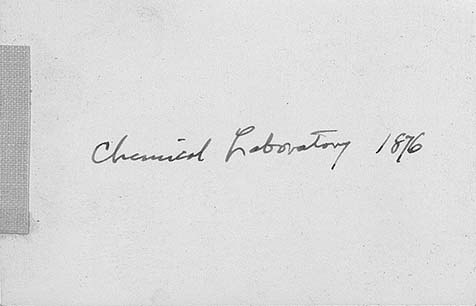 Chemical Laboratory 1876